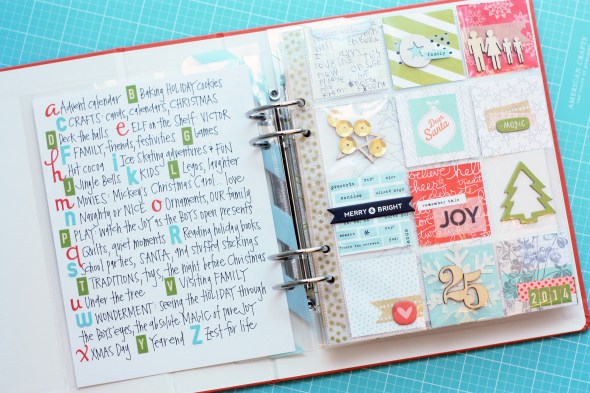 a Advent calendar B Baking HOLIDAY cookies
C CRAFTS: cards, calendars, CHRISTMAS
D Deck the halls e ELF on the Shelf: VICTOR
F FAMILY, friends, festivities G Games
h Hot cocoa i Ice Skating adventures + FUN
J Jingle Bells K KIDS L Legos, laughter
m MOVIES: Mickey's Christmas Carol... love
n Naughty or NICE o Ornaments, OUR family
P PLAY: watch the JOY as the BOYS open presents
q Quilts, quiet moments R Reading holiday books
S School parties, SANTA, and stuffed stockings
t TRADITIONS, toys, the night before Christmas
U Under the tree V Visiting FAMILY
W WONDERMENT: seeing the HOLIDAY through
the boys' eyes, the absolute MAGIC of pure JOY
x XMAS Day Y Year end Z Zest for life
family
Dear
Santa
MAGIC
presents
MERRY & BRIGHT
believe
remember this
JOY
25
2014
AMERICAN CRAFTS